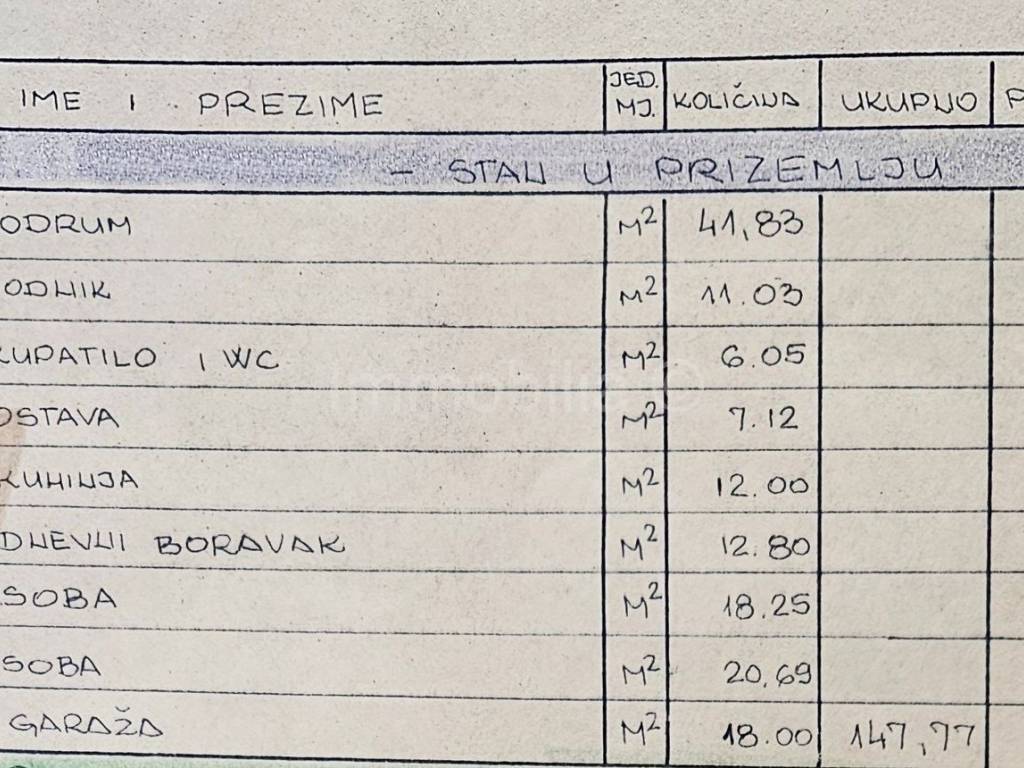 IME I PREZIME JED. MJ. KOLIČINA UKUPNO P
- STAN U PRIZEMLJU
ODRUM M² 41,83
ODNIK M² 11.03
KUPATILO I WC M² 6.05
OSTAVA M² 7.12
KUHINJA M² 12.00
DNEVNI BORAVAK M² 12.80
SOBA M² 18.25
SOBA M² 20,69
GARAŽA M² 18.00 147,77
Immobilie ©